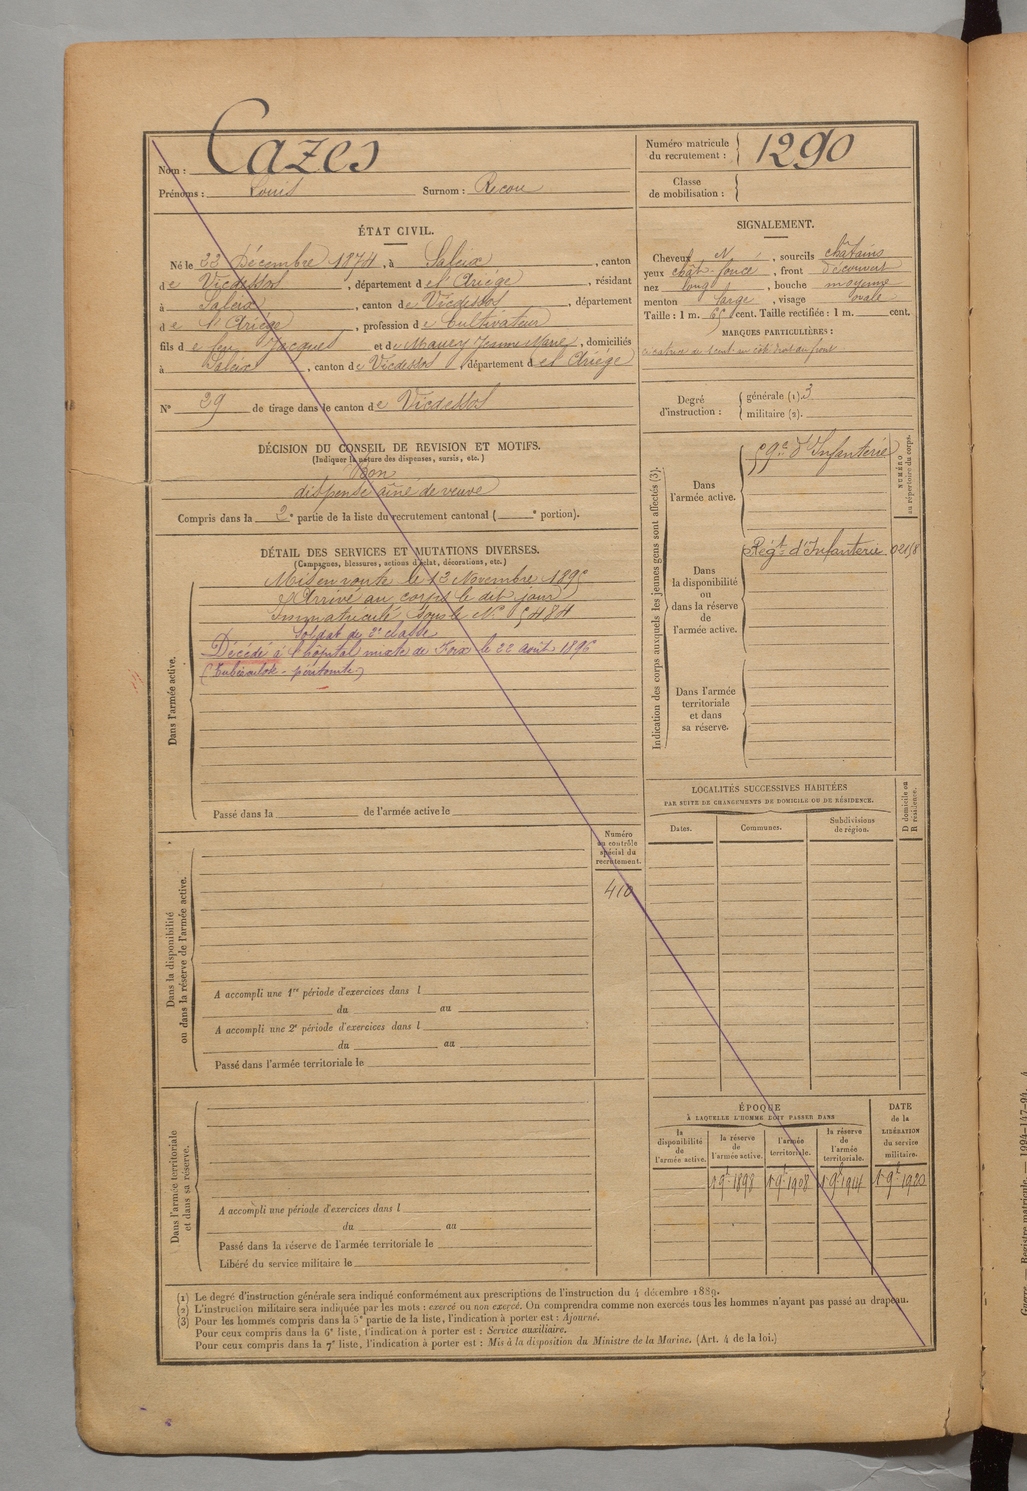 Nom : Cazes
Prénoms : Louis Surnom : Recou
Numéro matricule du recrutement : 1290
Classe de mobilisation :
ÉTAT CIVIL.
Né le 23 Décembre 1874, à Saleix, canton
de Vicdessos, département de l'Ariège, résidant
à Saleix, canton de Vicdessos, département
de l'Ariège, profession de Cultivateur
fils de feu Jacques et de Maury Jeanne Marie, domiciliés
à Saleix, canton de Vicdessos, département de l'Ariège
N° 29 de tirage dans le canton de Vicdessos
SIGNALEMENT.
Cheveux N, sourcils châtains
yeux chât-foncé, front découvert
nez long, bouche moyenne
menton large, visage ovale
Taille : 1 m. 65 cent. Taille rectifiée : 1 m. cent.
MARQUES PARTICULIÈRES :
cicatrice de 1 cent. au côté droit du front
Degré d'instruction : générale (1). 3
militaire (2).
DÉCISION DU CONSEIL DE REVISION ET MOTIFS.
(Indiquer la nature des dispenses, sursis, etc.)
Bon
dispensé aîné de veuve
Compris dans la 2e partie de la liste du recrutement cantonal ( e portion).
DÉTAIL DES SERVICES ET MUTATIONS DIVERSES.
(Campagnes, blessures, actions d'éclat, décorations, etc.)
Dans l'armée active.
Mis en route le 13 Novembre 1895
Arrivé au corps le dit jour
Immatriculé sous le N° 5484
Soldat de 2e classe
Décédé à l'hôpital mixte de Foix le 22 août 1896
(Tuberculose - péritonite)
Passé dans la de l'armée active le
Indication des corps auxquels les jeunes gens sont affectés (3).
NUMÉRO au répertoire du corps.
Dans l'armée active.
59e d'Infanterie
Dans la disponibilité ou dans la réserve de l'armée active.
Régt d'Infanterie
Dans l'armée territoriale et dans sa réserve.
LOCALITÉS SUCCESSIVES HABITÉES
PAR SUITE DE CHANGEMENTS DE DOMICILE OU DE RÉSIDENCE.
D domicile ou R résidence.
Dates. Communes. Subdivisions de région.
Numéro au contrôle spécial du recrutement.
410
Dans la disponibilité ou dans la réserve de l'armée active.
A accompli une 1re période d'exercices dans l
du au
A accompli une 2e période d'exercices dans l
du au
Passé dans l'armée territoriale le
Dans l'armée territoriale et dans sa réserve.
A accompli une période d'exercices dans l
du au
Passé dans la réserve de l'armée territoriale le
Libéré du service militaire le
ÉPOQUE
À LAQUELLE L'HOMME DOIT PASSER DANS
DATE de la LIBÉRATION du service militaire.
la disponibilité de l'armée active.
la réserve de l'armée active.
l'armée territoriale.
la réserve de l'armée territoriale.
1 9bre 1898 1 9bre 1908 1 9bre 1914 1 9bre 1920
(1) Le degré d'instruction générale sera indiqué conformément aux prescriptions de l'instruction du 4 décembre 1889.
(2) L'instruction militaire sera indiquée par les mots : exercé ou non exercé. On comprendra comme non exercés tous les hommes n'ayant pas passé au drapeau.
(3) Pour les hommes compris dans la 5e partie de la liste, l'indication à porter est : Ajourné.
Pour ceux compris dans la 6e liste, l'indication à porter est : Service auxiliaire.
Pour ceux compris dans la 7e liste, l'indication à porter est : Mis à la disposition du Ministre de la Marine. (Art. 4 de la loi.)